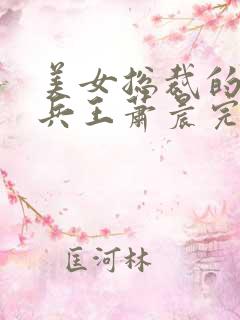 美女总裁的
兵王萧晨完
匡河林